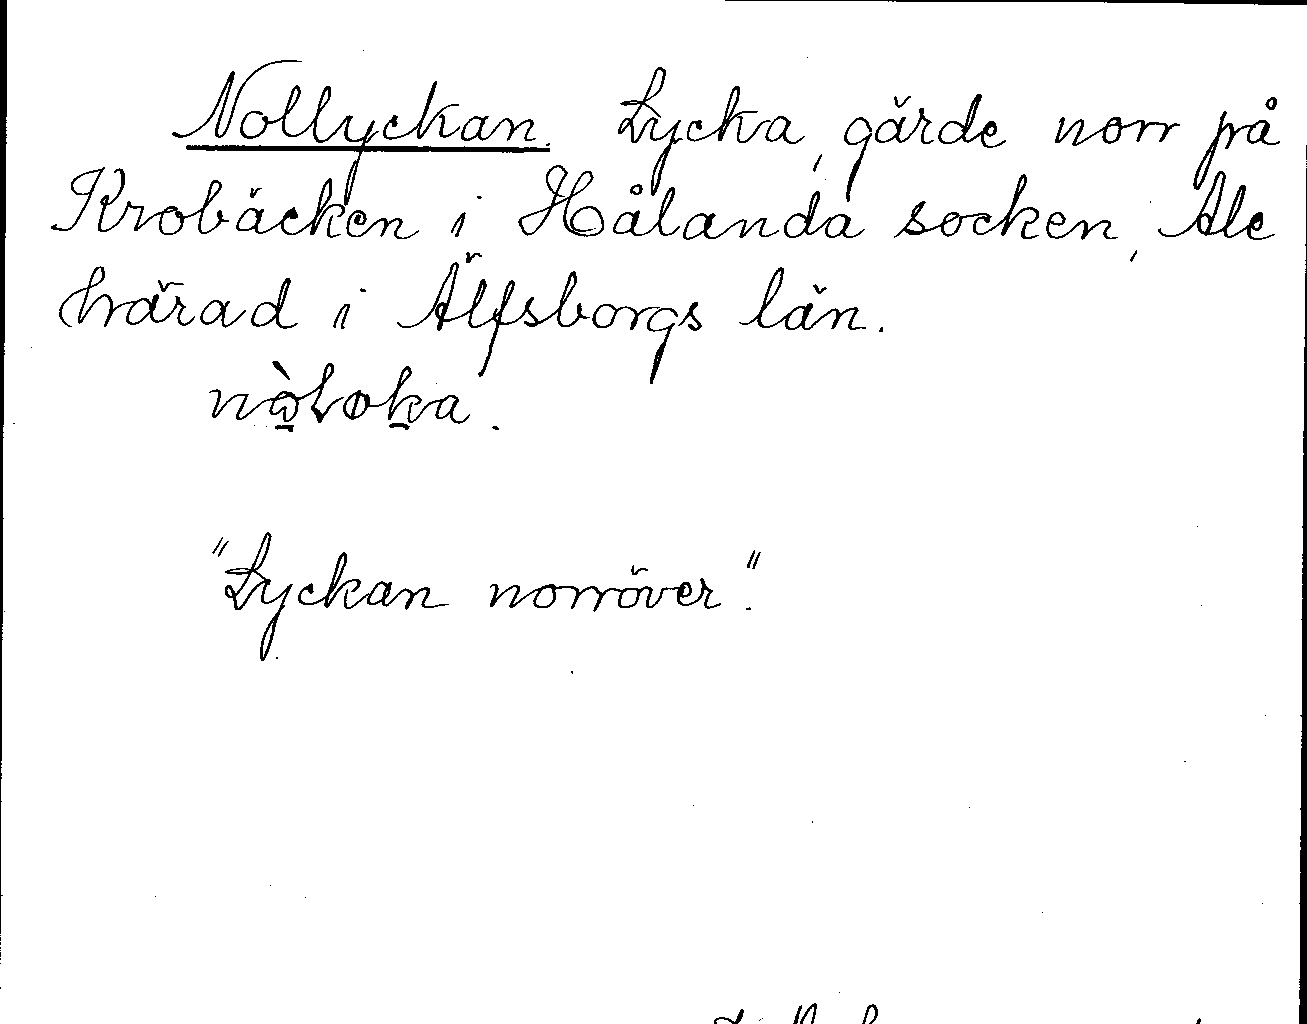 Nollyckan. Lycka, gärde norr på
Krobäcken i Hålanda socken, Ale
härad i Älfsborgs län.
nòloka.
"Lyckan norröver".